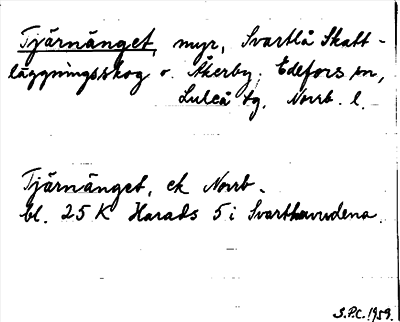 Tjärnänget, myr, Svartlå Skatt-
läggningsskog o. Åkerby. Edefors sn,
Luleå tg. Norrb. l.
Tjärnänget, ek Norrb.
bl. 25 K Harads 5 i Svarthuvudena.
S.P.C. 1959.